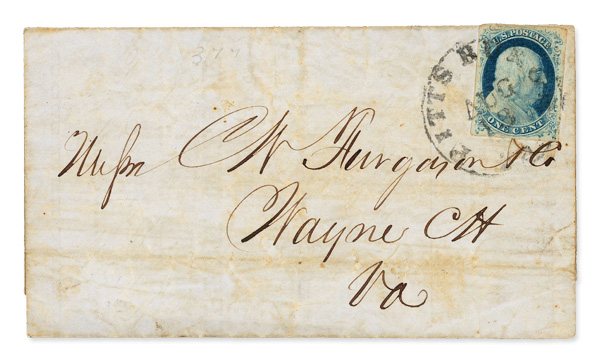 377
U.S. POSTAGE
ONE CENT
PITTSB
AUG
Messrs C W Furgason & Co
Wayne CH
Va